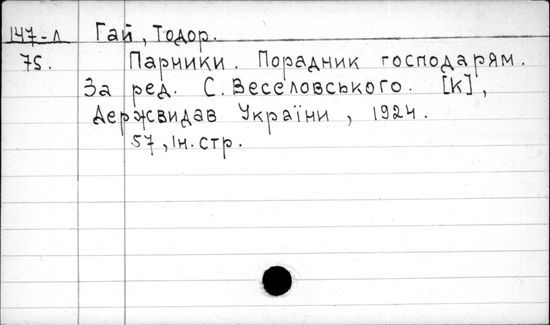 147-л Гай, Тодор.
75. Парники. Порадник господарям.
За ред. С. Веселовського. [К],
Держвидав України, 1924.
57, Ін. стр.